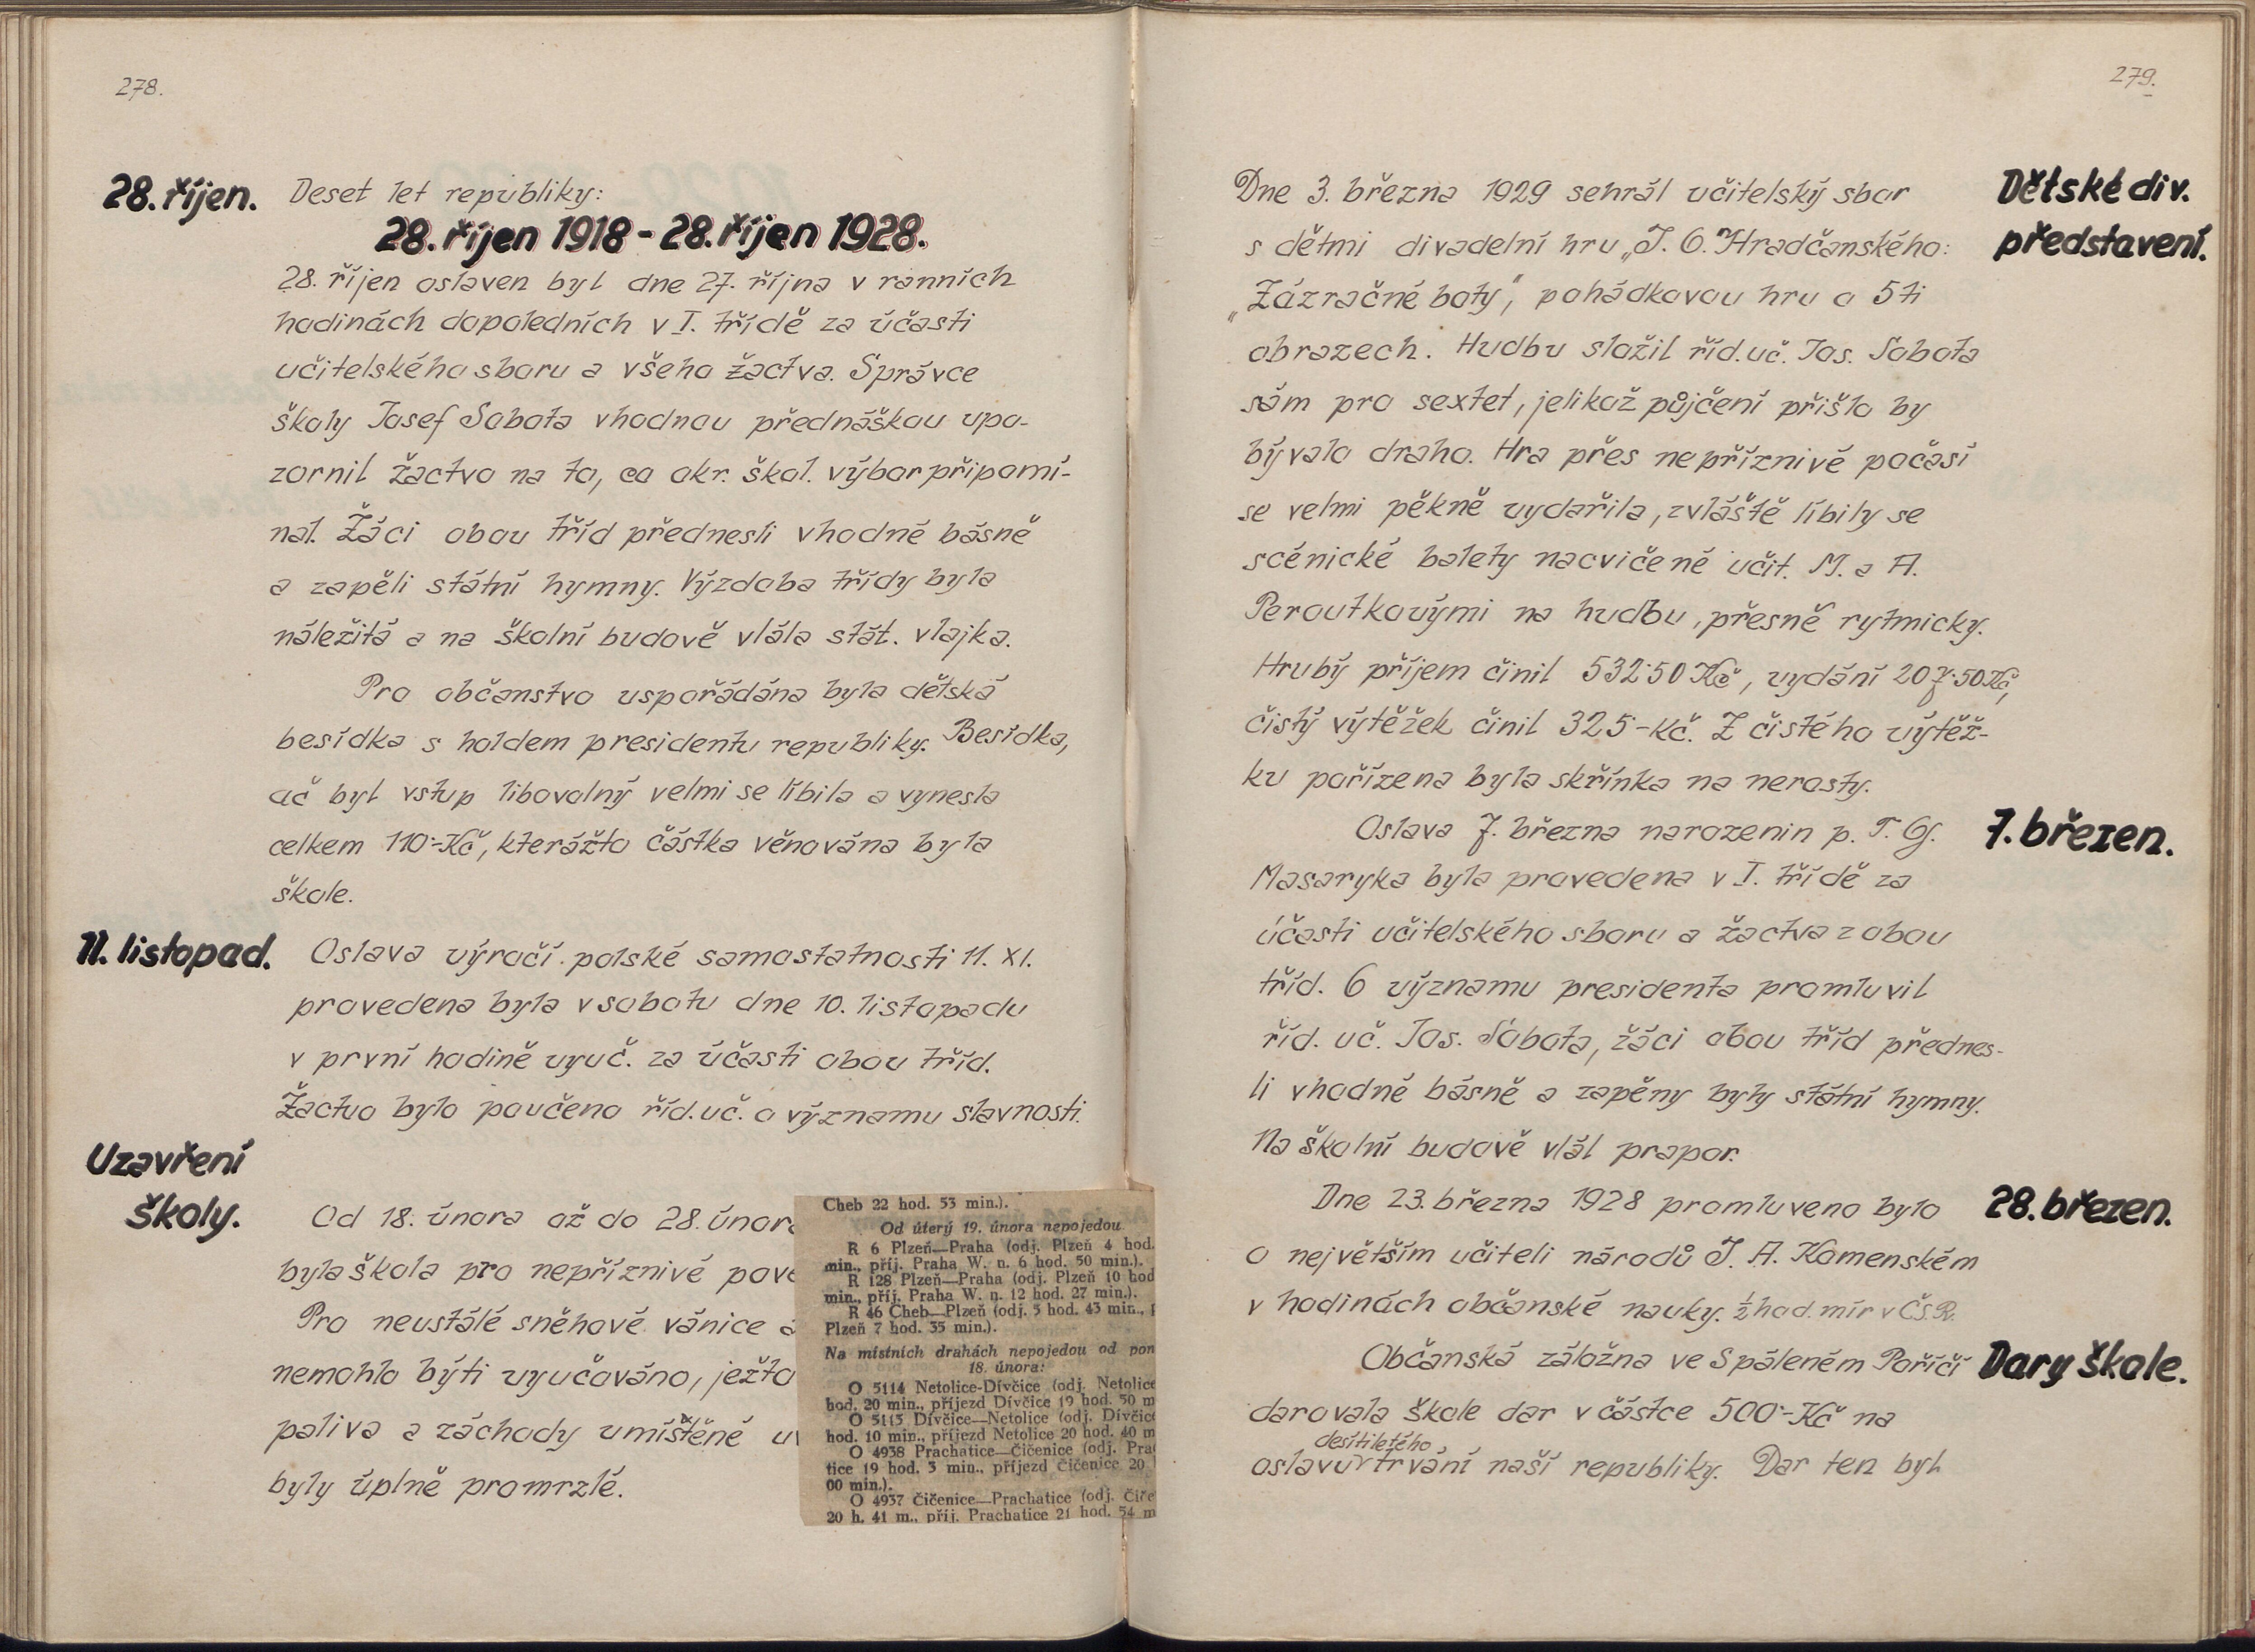 278.
28. říjen.
Deset let republiky:
28. říjen 1918 - 28. říjen 1928.
28. říjen oslaven byl dne 27. října v ranních
hodinách dopoledních v I. třídě za účasti
učitelského sboru a všeho žactva. Správce
školy Josef Sobota vhodnou přednáškou upo-
zornil žactvo na to, co okr. škol. výbor připomí-
nal. Žáci obou tříd přednesli vhodné básně
a zapěli státní hymny. Výzdoba třídy byla
náležitá a na školní budově vlála stát. vlajka.
Pro občanstvo uspořádána byla dětská
besídka s holdem presidentu republiky. Besídka,
ač byl vstup libovolný velmi se líbila a vynesla
celkem 110·-Kč, kterážto částka věnována byla
škole.
11. listopad.
Oslava výročí polské samostatnosti 11. XI.
provedena byla v sobotu dne 10. listopadu
v první hodině vyuč. za účasti obou tříd.
Žactvo bylo poučeno říd. uč. o významu slavnosti.
Uzavření
školy.
Od 18. února až do 28. února
byla škola pro nepříznivé
Pro neustálé sněhové vánice
nemohlo býti vyučováno, ježto
paliva a záchody umístěné
byly úplně promrzlé.
Cheb 22 hod. 53 min.).
Od úterý 19. února nepojedou
R 6 Plzeň—Praha (odj. Plzeň 4 hod.
min., příj. Praha W. n. 6 hod. 50 min.).
R 128 Plzeň—Praha (odj. Plzeň 10 hod
min., příj. Praha W. n. 12 hod. 27 min.).
R 46 Cheb—Plzeň (odj. 5 hod. 43 min.,
Plzeň 7 hod. 35 min.).
Na místních drahách nepojedou od pon
18. února:
O 5114 Netolice-Dívčice (odj. Netolice
hod. 20 min., příjezd Dívčice 19 hod. 50 m
O 5115 Dívčice—Netolice (odj. Dívčice
hod. 10 min., příjezd Netolice 20 hod. 40 m
O 4938 Prachatice—Čičenice (odj. Pra
tice 19 hod. 3 min., příjezd Čičenice 20
00 min.).
O 4937 Čičenice—Prachatice (odj. Čiče
20 h. 41 m., příj. Prachatice 21 hod. 54 m
279.
Dětské div.
představení.
Dne 3. března 1929 sehrál učitelský sbor
s dětmi divadelní hru „J. O. Hradčanského:
„Zázračné boty", pohádkovou hru o 5ti
obrazech. Hudbu složil říd. uč. Jos. Sobota
sám pro sextet, jelikož půjčení přišlo by
bývalo draho. Hra přes nepříznivé počasí
se velmi pěkně vydařila, zvláště líbily se
scénické balety nacvičené učit. M. a A.
Peroutkovými na hudbu, přesně rytmicky.
Hrubý příjem činil 532·50 Kč, vydání 207·50 Kč,
čistý výtěžek činil 325·-Kč. Z čistého výtěž-
ku pořízena byla skřínka na nerosty.
7. březen.
Oslava 7. března narozenin p. T. G.
Masaryka byla provedena v I. třídě za
účasti učitelského sboru a žactva z obou
tříd. O významu presidenta promluvil
říd. uč. Jos. Sobota, žáci obou tříd přednes-
li vhodné básně a zapěny byly státní hymny.
Na školní budově vlál prapor.
28. březen.
Dne 23. března 1928 promluveno bylo
o největším učiteli národů J. A. Komenském
v hodinách občanské nauky. ½ hod. mír v ČS.R.
Dary škole.
Občanská záložna ve Spáleném Poříčí
darovala škole dar v částce 500·-Kč na
desítiletého
oslavu trvání naší republiky. Dar ten byl